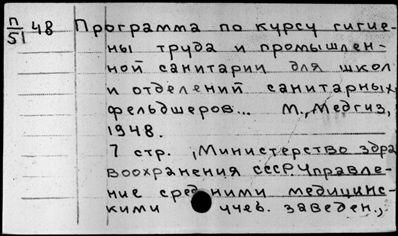 П/51 48 Программа по курсу гигие-
ны труда и промышлен-
ной санитарии для школ
и отделений санитарных
фельдшеров... М., Медгиз,
1948.
7 стр. (Министерство здра
воохранения СССР. Управле-
ние средними медицинс-
кими учеб. заведен.,